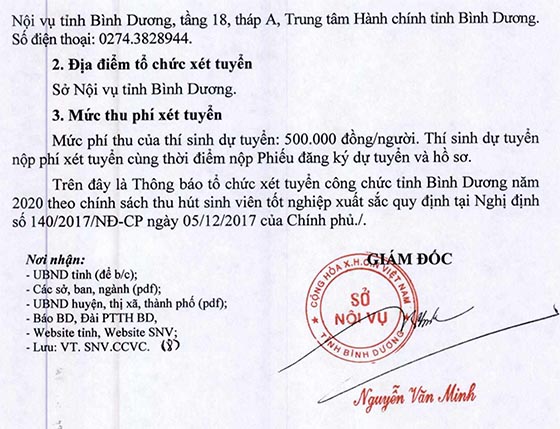 Nội vụ tỉnh Bình Dương, tầng 18, tháp A, Trung tâm Hành chính tỉnh Bình Dương.
Số điện thoại: 0274.3828944.
2. Địa điểm tổ chức xét tuyển
Sở Nội vụ tỉnh Bình Dương.
3. Mức thu phí xét tuyển
Mức phí thu của thí sinh dự tuyển: 500.000 đồng/người. Thí sinh dự tuyển
nộp phí xét tuyển cùng thời điểm nộp Phiếu đăng ký dự tuyển và hồ sơ.
Trên đây là Thông báo tổ chức xét tuyển công chức tỉnh Bình Dương năm
2020 theo chính sách thu hút sinh viên tốt nghiệp xuất sắc quy định tại Nghị định
số 140/2017/NĐ-CP ngày 05/12/2017 của Chính phủ./.
Nơi nhận:
- UBND tỉnh (để b/c);
- Các sở, ban, ngành (pdf);
- UBND huyện, thị xã, thành phố (pdf);
- Báo BD, Đài PTTH BD,
- Website tỉnh, Website SNV;
- Lưu: VT. SNV.CCVC. (8)
GIÁM ĐỐC
CỘNG HÒA X.H.C.N VIỆT NAM
SỞ
NỘI VỤ
TỈNH BÌNH DƯƠNG
Nguyễn Văn Minh